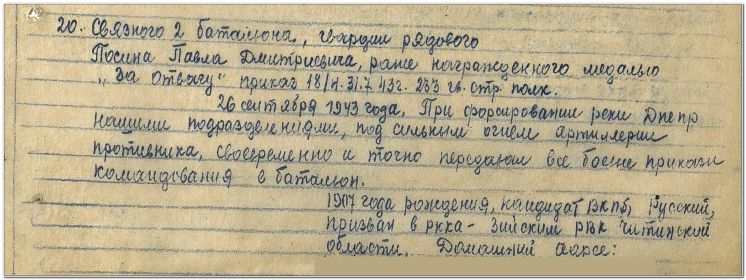 20. Связного 2 батальона, гвардии рядового
Посина Павла Дмитриевича, ранее награжденного медалью
"За отвагу" приказ 18/н. 31.7 43г. 233 гв. стр. полк.
26 сентября 1943 года. При форсировании реки Днепр
нашими подразделениями, под сильным огнем артиллерии
противника, своевременно и точно передавал все боевые приказы
командования в батальон.
1907 года рождения, кандидат ВКПб, Русский,
призван в РККА - Зейским РВК Читинской
области. Домашний адрес: